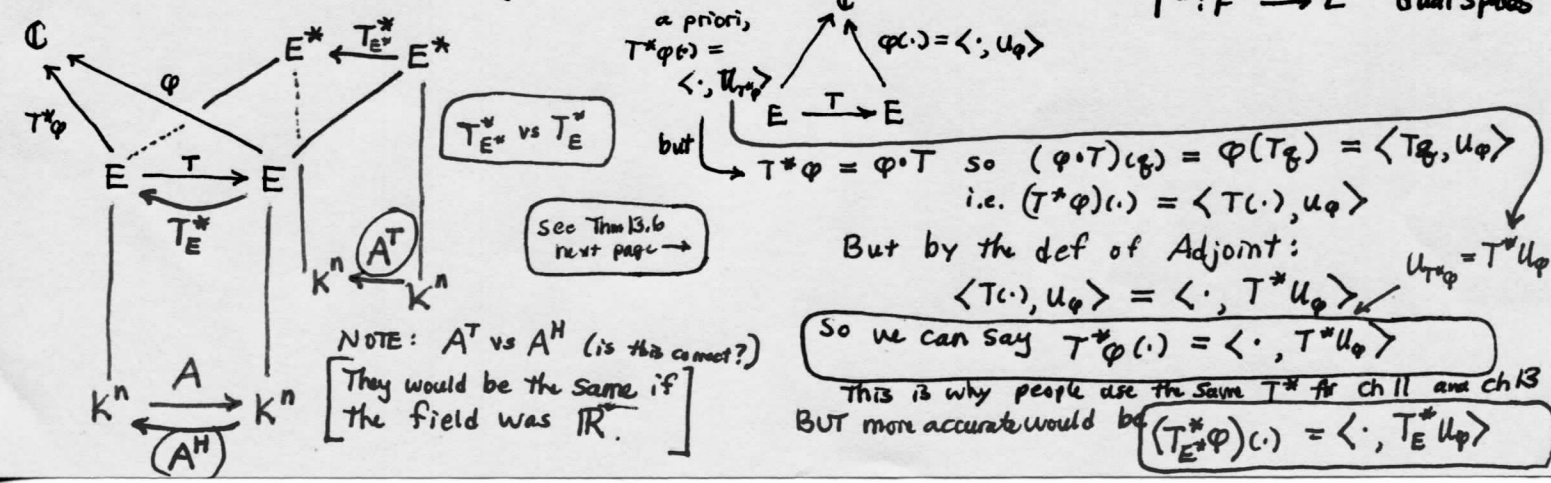 ℂ
E* T*_E* E*
φ
T*φ
E T E
T*_E
Kⁿ Aᵀ Kⁿ
Kⁿ A Kⁿ
Aᴴ
T*_E* vs T*_E
See Thm 13.6
next page →
NOTE: Aᵀ vs Aᴴ (is this correct?)
[They would be the same if
the field was ℝ.]
a priori,
T*φ(·) =
<·, U_T*φ>
φ(·) = <·, u_φ>
E T E
but
T*φ = φ∘T so (φ∘T)(q) = φ(Tq) = <Tq, u_φ>
i.e. (T*φ)(·) = <T(·), u_φ>
But by the def of Adjoint:
u_T*φ = T*u_φ
<T(·), u_φ> = <·, T*u_φ>
So we can say T*φ(·) = <·, T*u_φ>
This is why people use the same T* for ch 11 and ch 13
BUT more accurate would be (T*_E*φ)(·) = <·, T*_E u_φ>